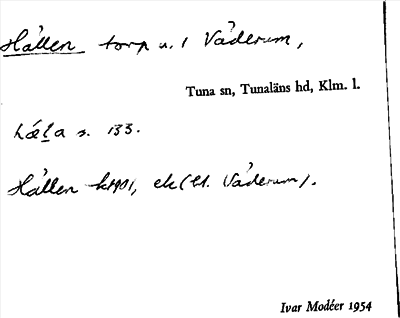 Hållen torp u. 1 Våderum,
Tuna sn, Tunaläns hd, Klm. l.
s. 133.
Hållen k1901, ek (lt. Våderum).
Ivar Modéer 1954